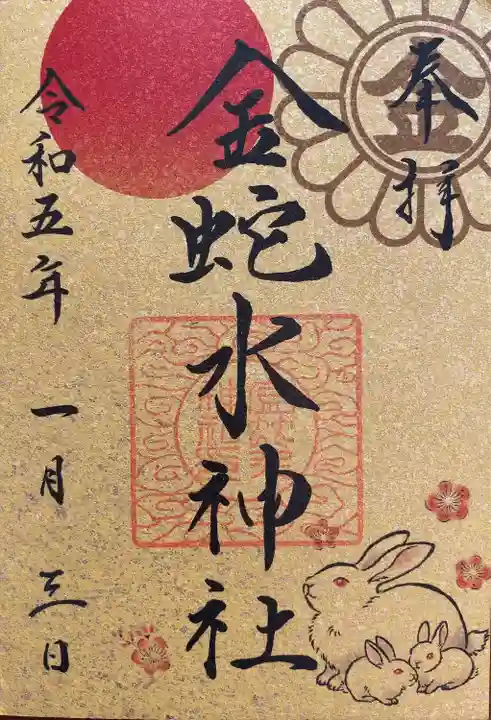 奉拝
金
金蛇水神社
令和五年 一月 三日